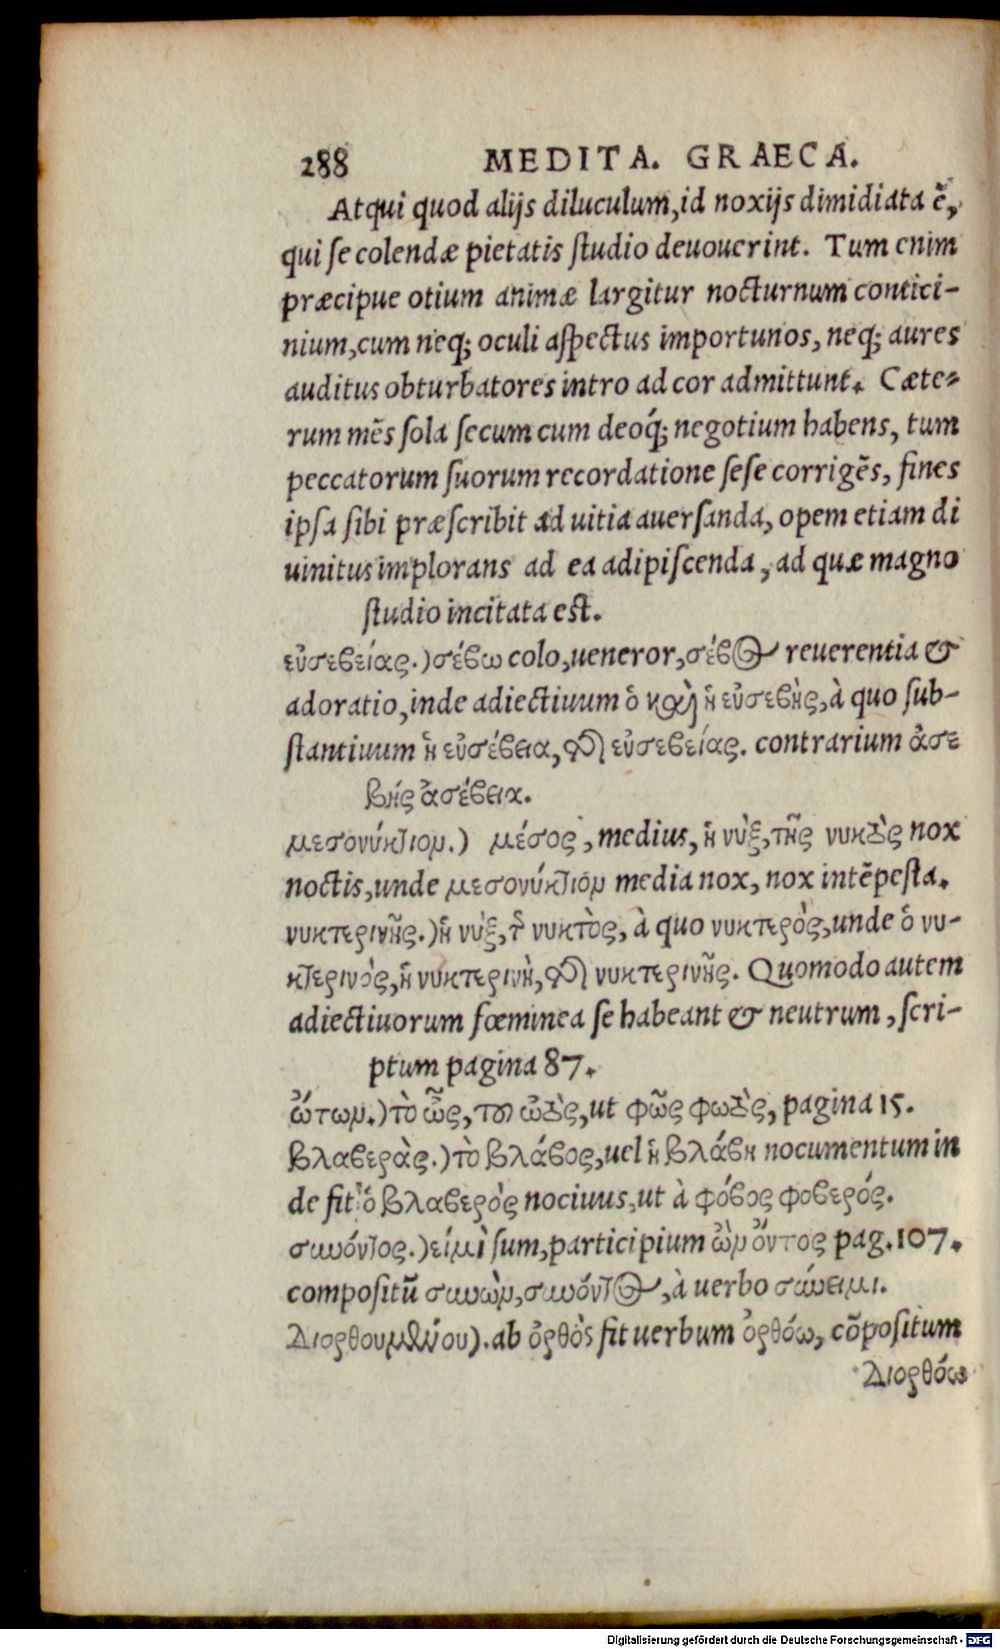 288 MEDITA. GRAECA.
Atqui quod alijs diluculum, id noxijs dimidiata ē,
qui se colendæ pietatis studio deuouerint. Tum enim
præcipue otium animæ largitur nocturnum contici-
nium, cum neq; oculi aspectus importunos, neq; aures
auditus obturbatores intro ad cor admittunt. Cæte-
rum mēs sola secum cum deoq́; negotium habens, tum
peccatorum suorum recordatione sese corrigēs, fines
ipsa sibi præscribit ad uitia auersanda, opem etiam di
uinitus implorans ad ea adipiscenda, ad quæ magno
studio incitata est.
εὐσεβείας.) σέβω colo, ueneror, σέβος reuerentia &
adoratio, inde adiectiuum ὁ καὶ ἡ εὐσεβὴς, à quo sub-
stantiuum ἡ εὐσέβεια, τῆς εὐσεβείας. contrarium ἀσε
βής ἀσέβεια.
μεσονύκτιον.) μέσος, medius, ἡ νὺξ, τῆς νυκτὸς nox
noctis, unde μεσονύκτιον media nox, nox intēpesta.
νυκτερινῆς.) ἡ νύξ, τῆς νυκτὸς, à quo νυκτερὸς, unde ὁ νυ-
κτερινὸς, ἡ νυκτερινὴ, τῆς νυκτερινῆς. Quomodo autem
adiectiuorum fœminea se habeant & neutrum, scri-
ptum pagina 87.
ὤτων.) τὸ ὦς, του ὠτὸς, ut φῶς φωτὸς, pagina 15.
βλαβερὰς.) τὸ βλάβος, uel ἡ βλάβη nocumentum in
de fit ὁ βλαβερὸς nociuus, ut à φόβος φοβερός.
συνόντος.) εἰμὶ sum, participium ὢν ὄντος pag. 107.
compositū συνὼν, συνόντος, à uerbo σύνειμι.
Διορθουμένου). ab ὀρθὸς fit uerbum ὀρθόω, cōpositum
Διορθόω
Digitalisierung gefördert durch die Deutsche Forschungsgemeinschaft - DFG